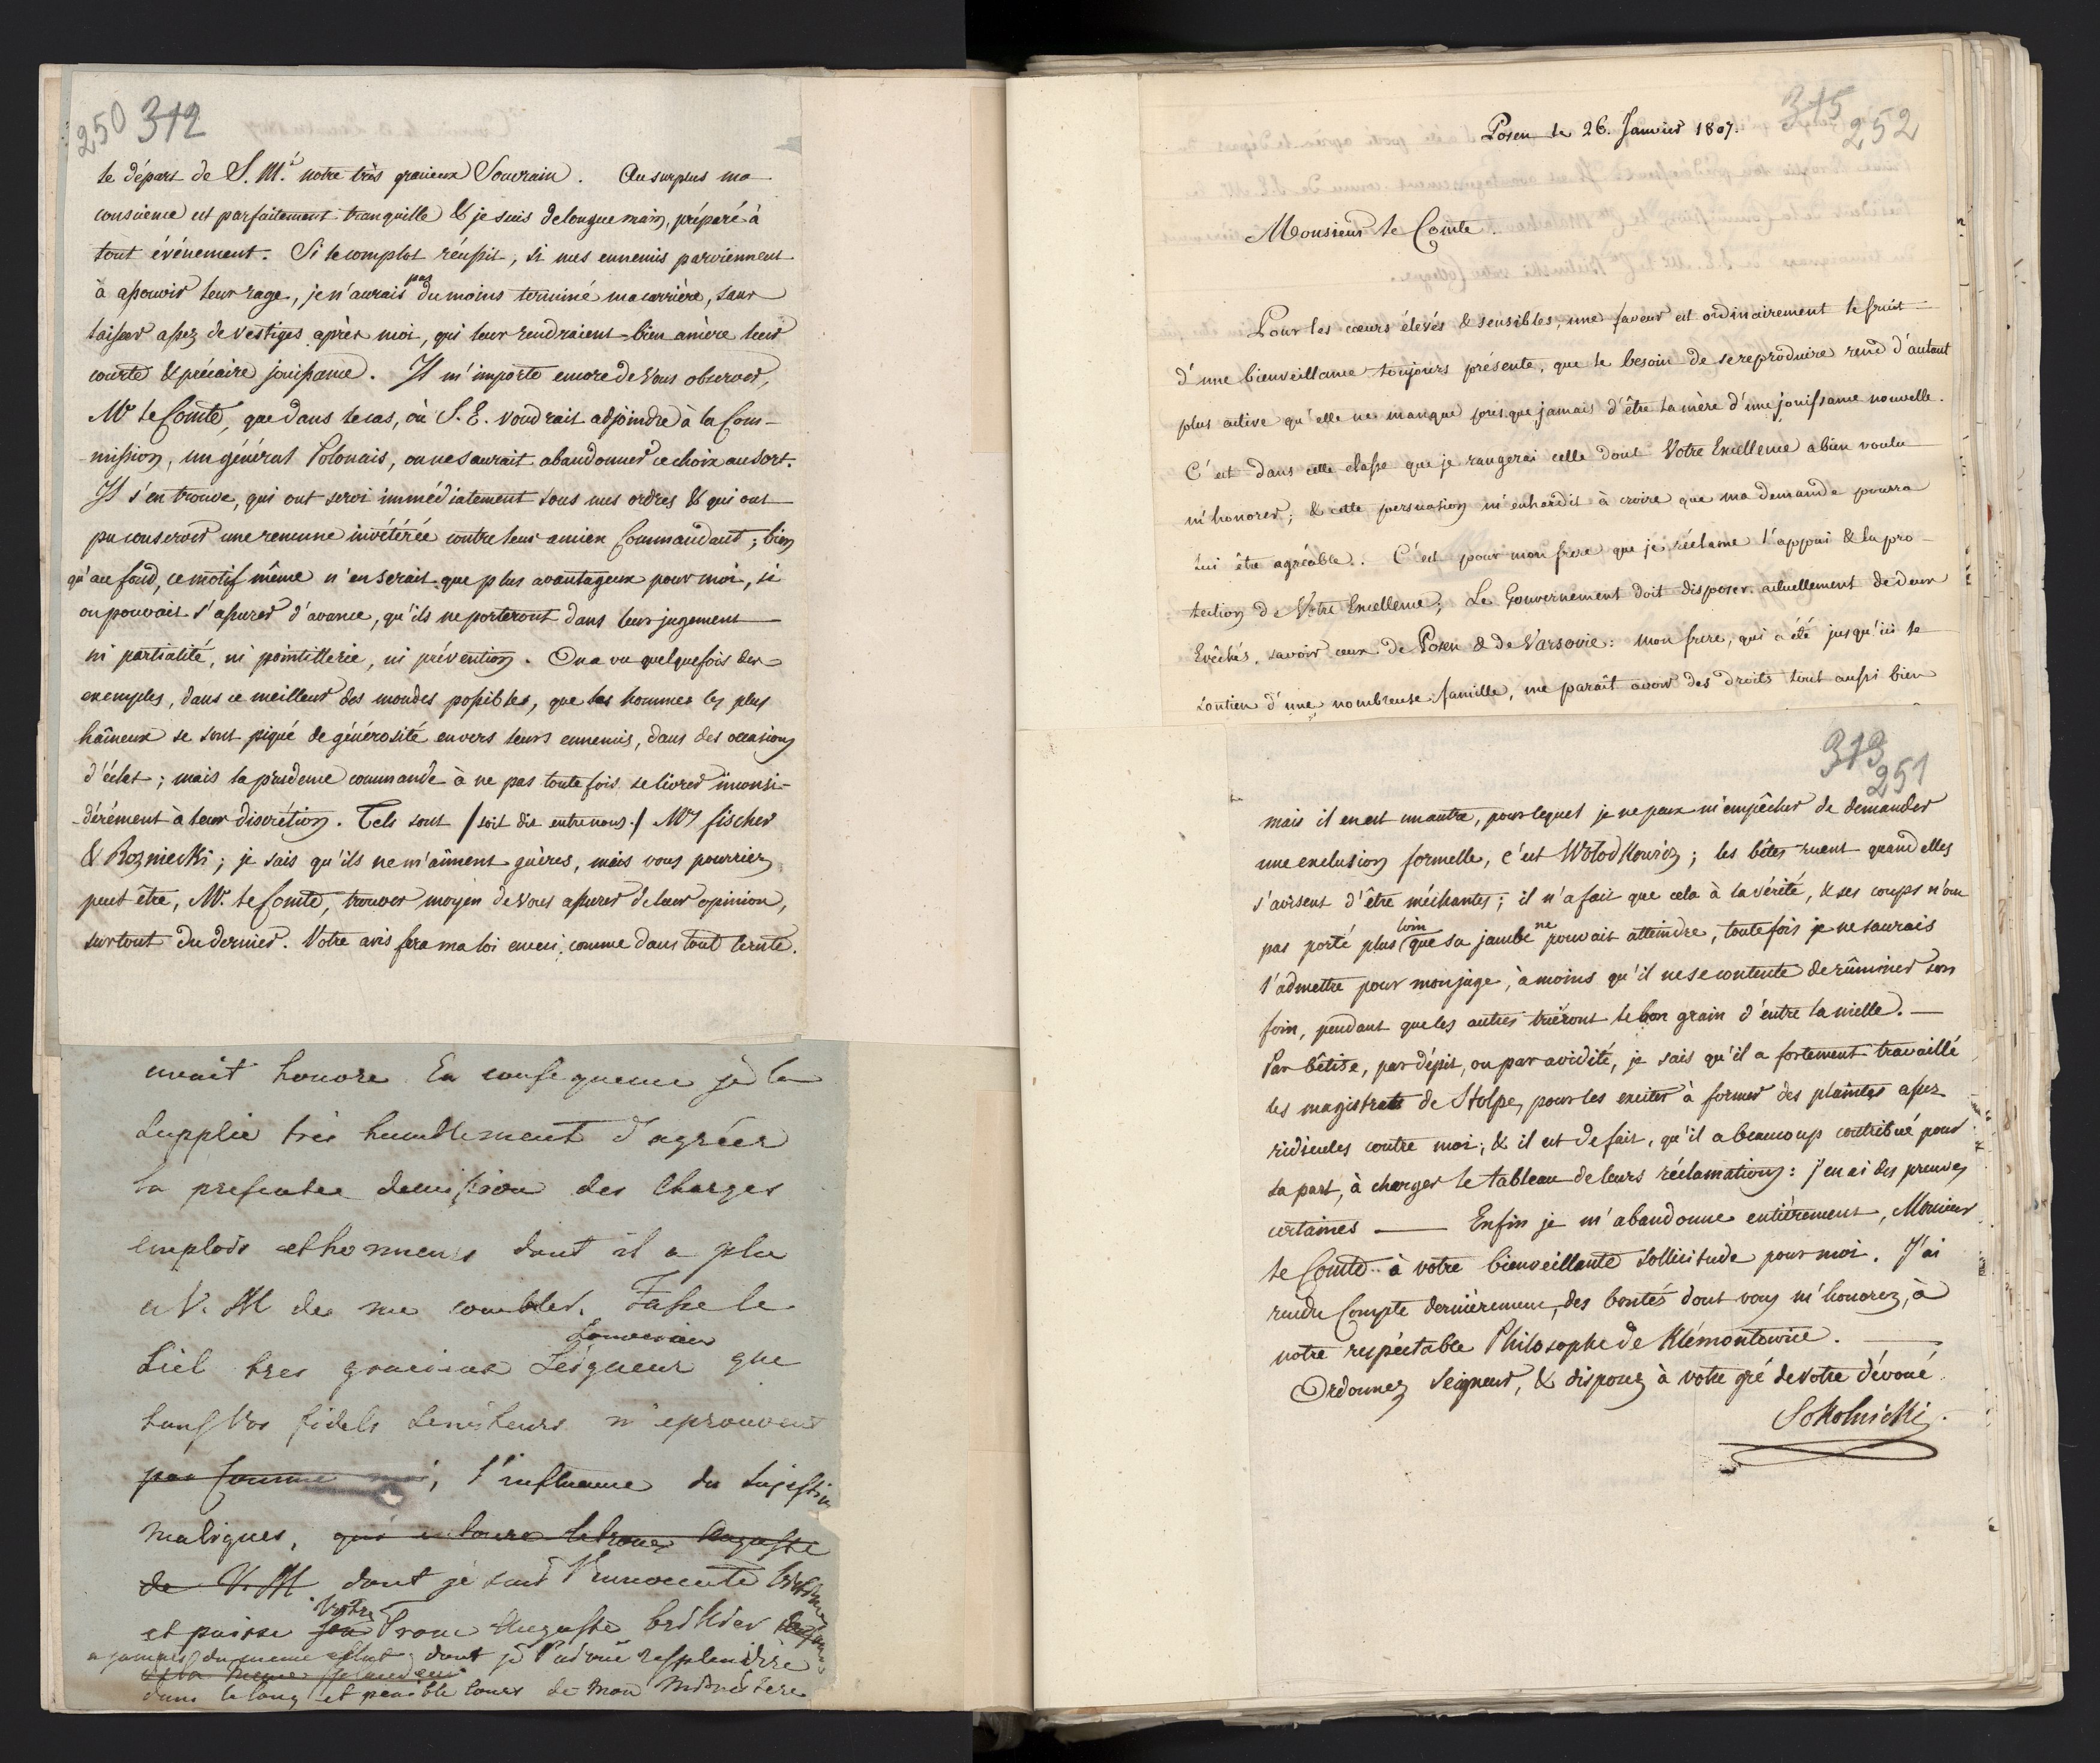 250 312
le départ de S. M.é notre très gracieux Souvrain. Au surplus ma
conscience est parfaitement tranquille & je suis de longue main, préparé à
tout événement. Si le complot réussit, si mes ennemis parviennent
à assouvir leur rage, je n'aurais pas du moins terminé ma carrière, sans
laisser assez de vestiges après moi, qui leur rendraient bien amère leur
courte & précaire jouissance. Il m'importe encore de Vous observer,
Mr le Comte, que dans le cas, où S. E. voudrait adjoindre à la Com-
mission, un général Polonais, on ne saurait abandonner ce choix au sort.
Il s'en trouve, qui ont servi immédiatement sous mes ordres & qui ont
pu conserver une rencune invétérée contre leur ancien Commandant; bien
qu'au fond, ce motif même n'en serait que plus avantageux pour moi, si
on pouvait s'assurer d'avance, qu'ils ne porteront dans leur jugement
ni partialité, ni pointillerie, ni prévention. On a vu quelquefois des
exemples, dans ce meilleur des mondes possibles, que les hommes les plus
haîneux se sont piqué de générosité envers leurs ennemis, dans des occasions
d'éclat; mais la prudence commande à ne pas toute fois se livrer inconsi-
dérément à leur discrétion. Tels sont / soit dit entre nous / Mrs fischer
& Rozniecki; je sais qu'ils ne m'aîment guères, mais vous pourriez
peut être, Mr. le Comte, trouver moyen de Vous assurer de leur opinion,
surtout du dernier. Votre avis sera ma loi en ceci, comme dans tout le reste.
menait honore. En consequence je la
supplie très humblement d'agréer
la presentee demission des Charges
emplois et honneurs dont il a plu
a V. M de me combler. Fasse le
Souverain
Ciel tres gracieux Seigneur que
tous Vos fidels serviteurs n'eprouvent
pas comme moi, l'influence du
maliques, qui entoure le trone Auguste
de V. M dont je suis l'innocente victime
Votre
et puisse son Trone Auguste briller
a jamais du meme eclat, dont je l'ai vue resplendire
de la meme splendeur
dans le long et penible cours de mon ministere
315 252
Posen le 26. Janvier 1807.
Monsieur le Comte.
Pour les cœurs élevés & sensibles, une faveur est ordinairement le fruit
d'une bienveillance toujours présente, que le besoin de se reproduire rend d'autant
plus active qu'elle ne manque presque jamais d'être la mère d'une jouissance nouvelle.
C'est dans cette classe que je rangerai celle dont Votre Excellence a bien voulu
m'honorer; & cette persuasion m'enhardit à croire que ma demande pourra
lui être agréable. C'est pour mon frere que je réclame l'appui & la pro-
tection de Votre Excellence; Le Gouvernement doit disposer actuellement de deux
Evêchés, savoir ceux de Posen & de Varsovie: mon frere, qui a été jusqu'ici le
soutien d'une nombreuse famille, me paraît avoir des droits tout aussi bien
313 251
mais il en est un autre, pour lequel je ne peux m'empêcher de demander
une exclusion formelle, c'est Wolodkowicz; les bêtes ruent quand elles
s'avisent d'être méchantes; il n'a fait que cela à la vérité, & ses coups n'ont
pas porté plus loin que sa jambe ne pouvait atteindre, toute fois je ne saurais
l'admettre pour mon juge, à moins qu'il ne se contente de rûminer son
foin, pendant que les autres trieront le bon grain d'entre la nielle. —
Par bêtise, par dépit, ou par avidité, je sais qu'il a fortement travaillé
les magistrats de Stolpe, pour les exciter à former des plaintes assez
ridicules contre moi; & il est de fait, qu'il a beaucoup contribué pour
sa part, à charger le tableau de leurs réclamations: j'en ai des preuves
certaines — Enfin je m'abandonne entièrement, Monsieur
le Comte à votre bienveillante sollicitude pour moi. J'ai
rendu Compte dernièrement, des bontés dont vous m'honorez, à
notre respéctable Philosophe de Klémontowice. —
Ordonnez Seigneur, & disposez à votre gré de votre dévoué.
Sokolnicki.